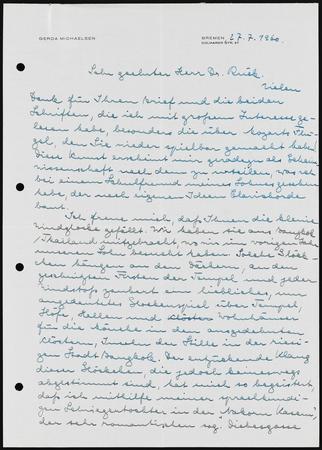 GERDA MICHAELSEN
BREMEN 27.7.1960.
COLMARER STR.
Sehr geehrter Herr Dr. Rück.
Vielen
Dank für Ihren Brief und die beiden
Schriften, die ich mit großem Interesse ge-
lesen habe, besonders die über Mozarts Flü-
gel, den Sie wieder spielbar gemacht haben.
Diese Kunst erscheint mir geradezu als Geheim-
wissenschaft nach dem zu urteilen, was ich
bei einem Schulfreund meines Sohnes gesehen
habe, der nach eigenen Ideen Clavichorde
baut.
Ich freue mich, daß Ihnen die kleine
Windglocke gefällt. Wir haben sie aus Bangkok
/Thailand mitgebracht, wo wir im vorigen Jahr
unseren Sohn besucht haben. Solche Glöck-
chen hängen an den Dächern, an den
geschweiften Firsten der Tempel und jeder
Windstoß zaubert ein liebliches,
Glockenspiel über Tempel,
Höfe, Hallen und Wohnhäuser
für die Mönche in den ausgedehnten
Klöstern, Inseln der Stille in der riesi-
gen Stadt Bangkok. Der entzückende Klang
dieser Glöckchen, die jedoch keineswegs
abgestimmt sind, hat mich so begeistert,
daß ich mithilfe meiner sprachkundi-
gen Schwiegertochter in der "Nakorn Kasem",
der sehr romantischen sog. Diebesgasse